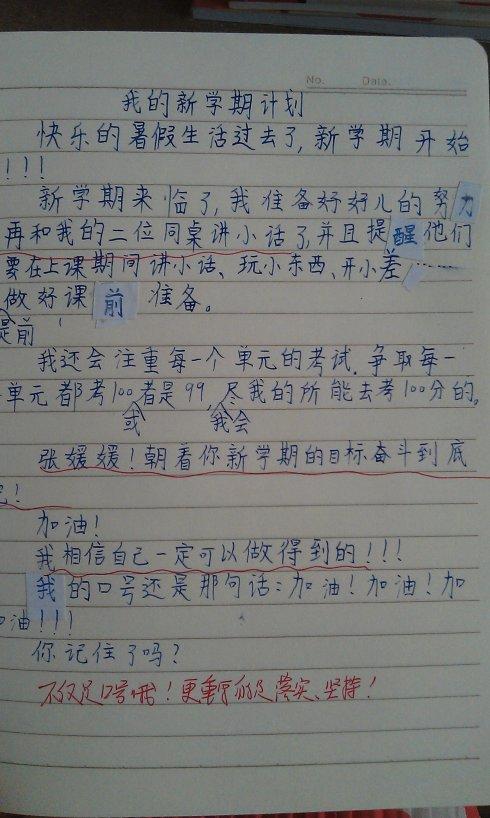 No. Date.
我的新学期计划
快乐的暑假生活过去了,新学期开始
!!!
新学期来临了,我准备好好儿的努力
再和我的二位同桌讲小话了,并且提醒他们
要在上课期间讲小话、玩小东西、开小差
做好课前准备。
是前
我还会注重每一个单元的考试.争取每一
单元都考100者是99,尽我的所能去考100分的。
或 我会
张媛媛!朝着你新学期的目标奋斗到底
吧!
加油!
我相信自己一定可以做得到的!!!
我的口号还是那句话:加油!加油!加
油!!!
你记住了吗?
不仅是口号哦!更重要的是落实、坚持!